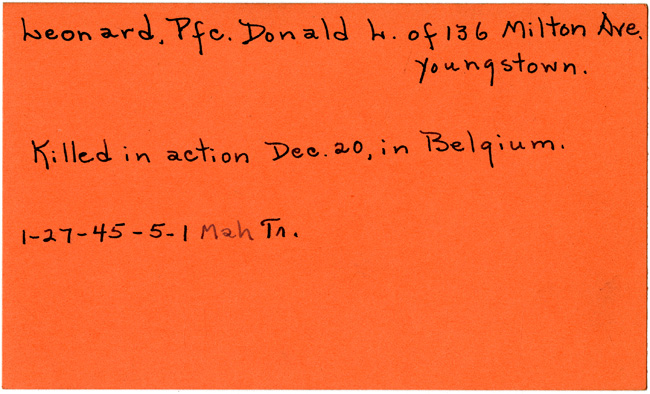 Leonard, Pfc. Donald L. of 136 Milton Ave.
Youngstown.
Killed in action Dec. 20, in Belgium.
1-27-45-5-1 Mah Tr.